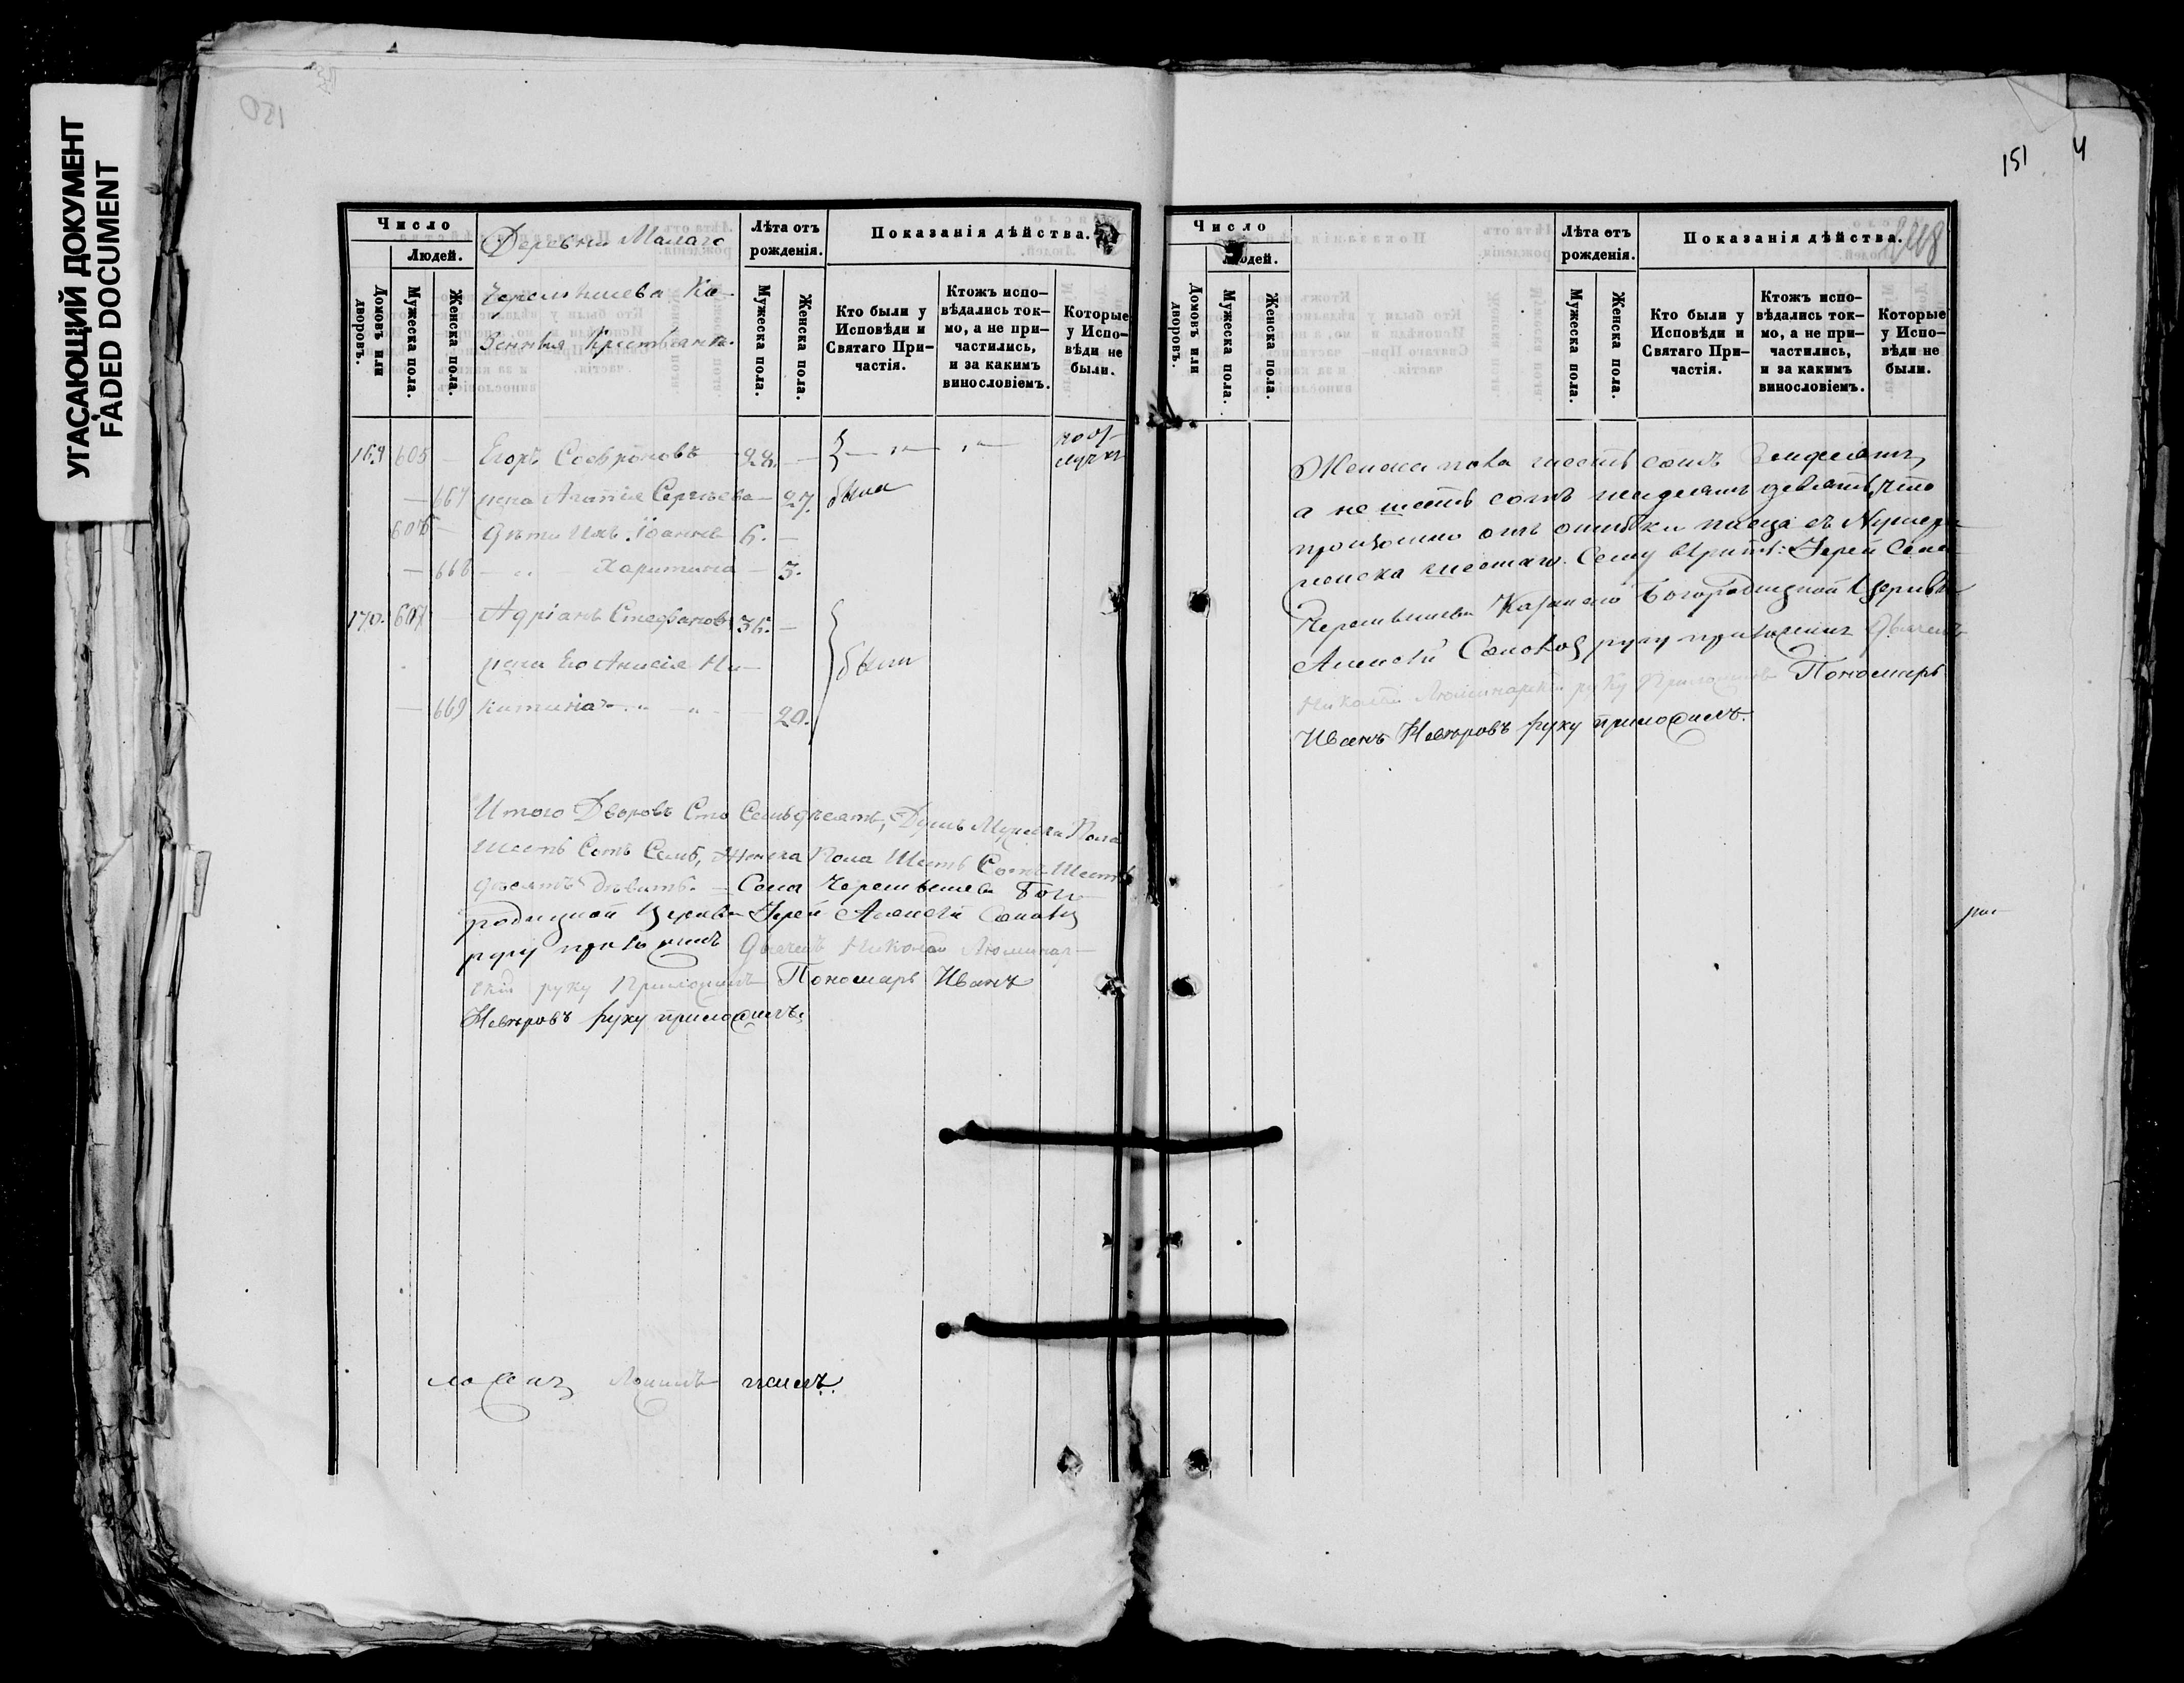 УГАСАЮЩИЙ ДОКУМЕНТ
FADED DOCUMENT
150
Число
Людей.
Домовъ или дворовъ.
Мужеска пола.
Женска пола.
Деревни Малаго
Черемышева Ка-
зенныя Крестьяня.
Лѣта отъ рожденія.
Мужеска пола.
Женска пола.
Показанія дѣйства.
Кто были у Исповѣди и Святаго При-частія.
Ктожъ испо-вѣдались ток-мо, а не при-частились, и за какимъ винословіемъ.
Которые у Испо-вѣди не были.
169 605 — Егоръ Софроновъ 28. — по от-лучкѣ
— 667 жена Агапія Сергѣева — 27. была
606 — дѣти ихъ Іоаннъ 6. —
— 668 — „ — Харитина — 3.
170. 607 — Адріанъ Стефановъ 36. —
жена Его Анисія Ни- были
— 669 китина — „ — 20.
Итого Дворовъ Сто Семьдѣсятъ, Душъ Мужеска Пола
Шесть Сотъ Семь, Женска Пола Шесть Сотъ Шесть
дѣсятъ дѣвить. — Села Черемышева Бого-
родицкой Церкви Іерей Алексѣй
руку приложилъ Дьячекъ Николай Люминар-
скій руку Приложилъ Пономарь Иванъ
Невѣровъ руку приложилъ.
151 4
Число
Людей.
Домовъ или дворовъ.
Мужеска пола.
Женска пола.
Лѣта отъ рожденія.
Мужеска пола.
Женска пола.
Показанія дѣйства.
Кто были у Исповѣди и Святаго При-частія.
Ктожъ испо-вѣдались ток-мо, а не при-частились, и за какимъ винословіемъ.
Которые у Испо-вѣди не были.
Женска пола шесть сотъ
а не шесть сотъ шесдесятъ девять, что
произошло отъ ошибки писца въ Нумера
женска шестаго. Сему Іерей Села
Черемышева Казанско Богородицкой Церкви
Алексѣй руку приложилъ Дьячекъ
Николай Люминарскій руку Приложилъ Пономарь
Иванъ Невѣровъ руку приложилъ.